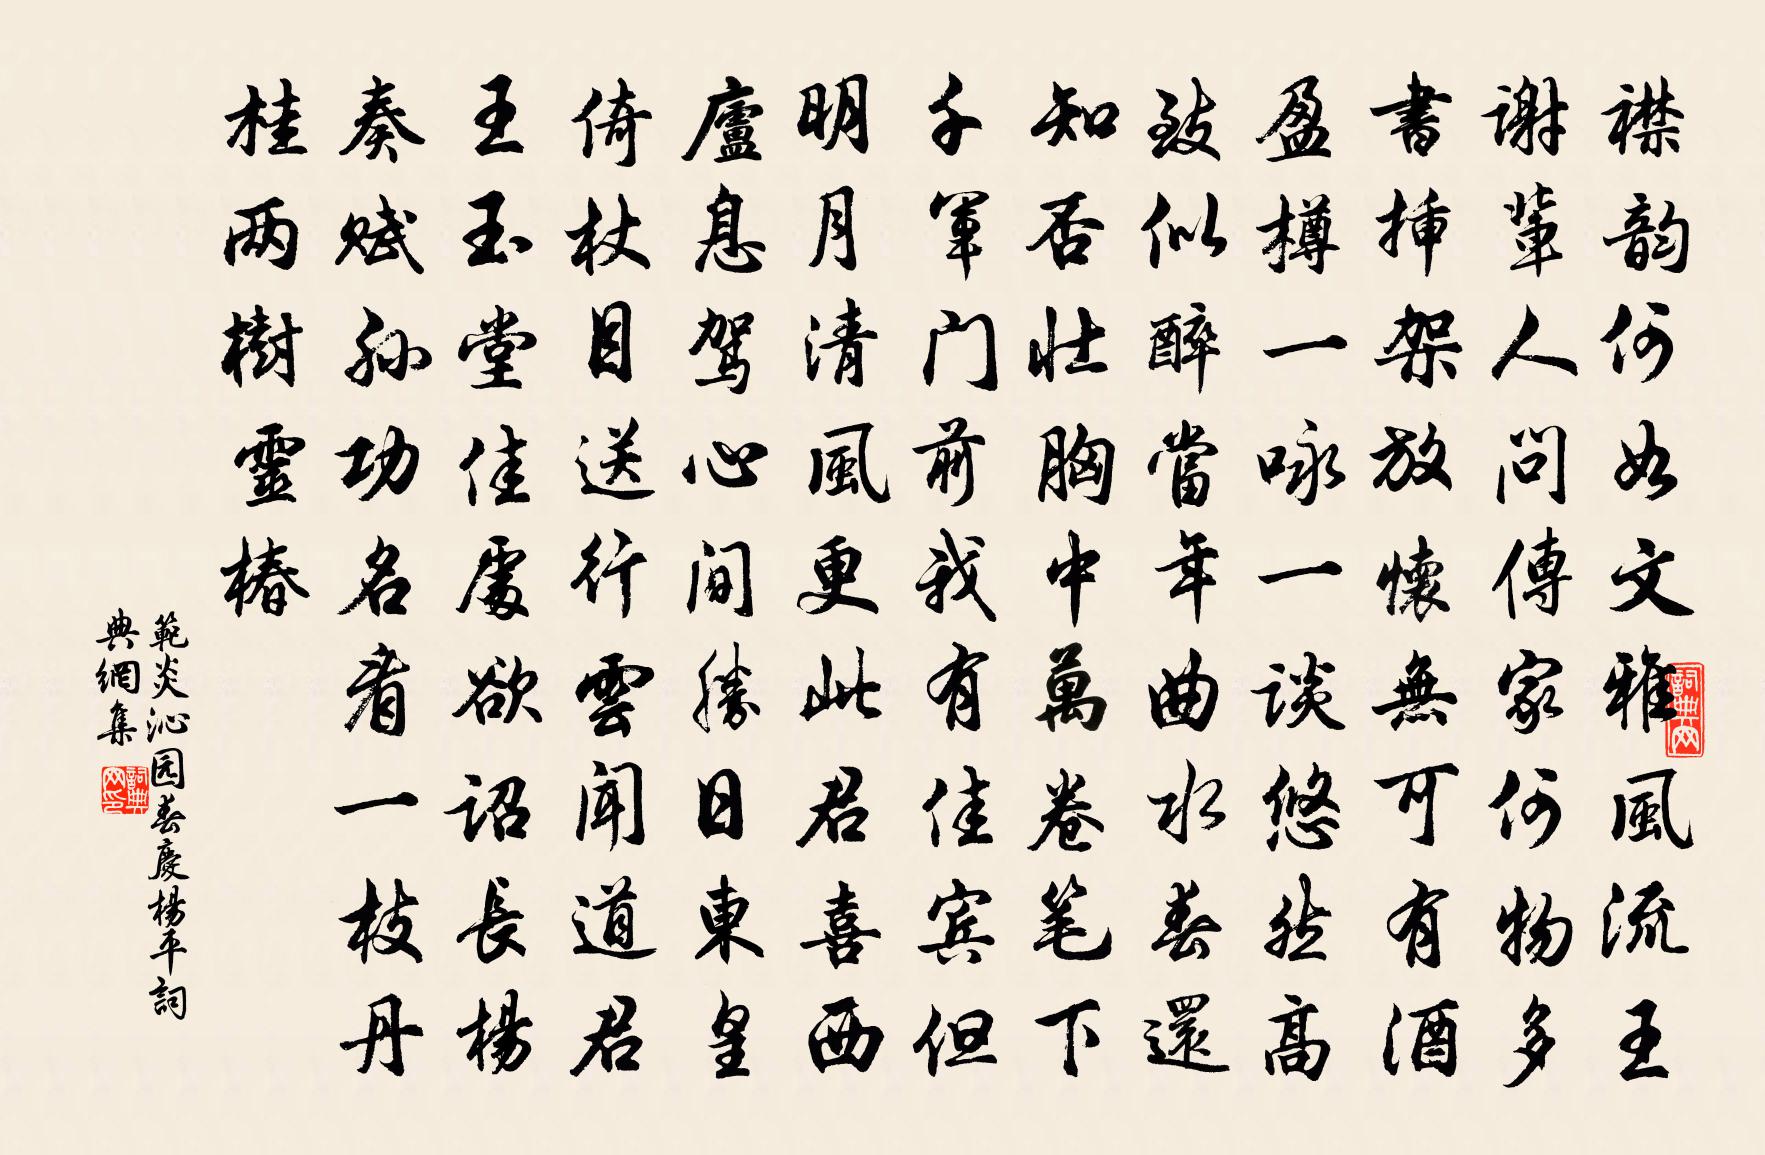 襟韵何如文雅風流王
謝輩人問傳家何物多
書挿架放懷無可有酒
盈樽一咏一談悠然高
致似醉當年曲水春還
知否壯胸中萬卷笔下
千軍门前我有佳宾但
明月清風更此君喜西
廬息駕心间勝日東皇
倚杖目送行雲聞道君
王玉堂佳處欲诏長楊
奏赋孙功名看一枝丹
桂两樹靈椿
範炎沁园春慶楊平詞
典網集
詞典网
詞典网印